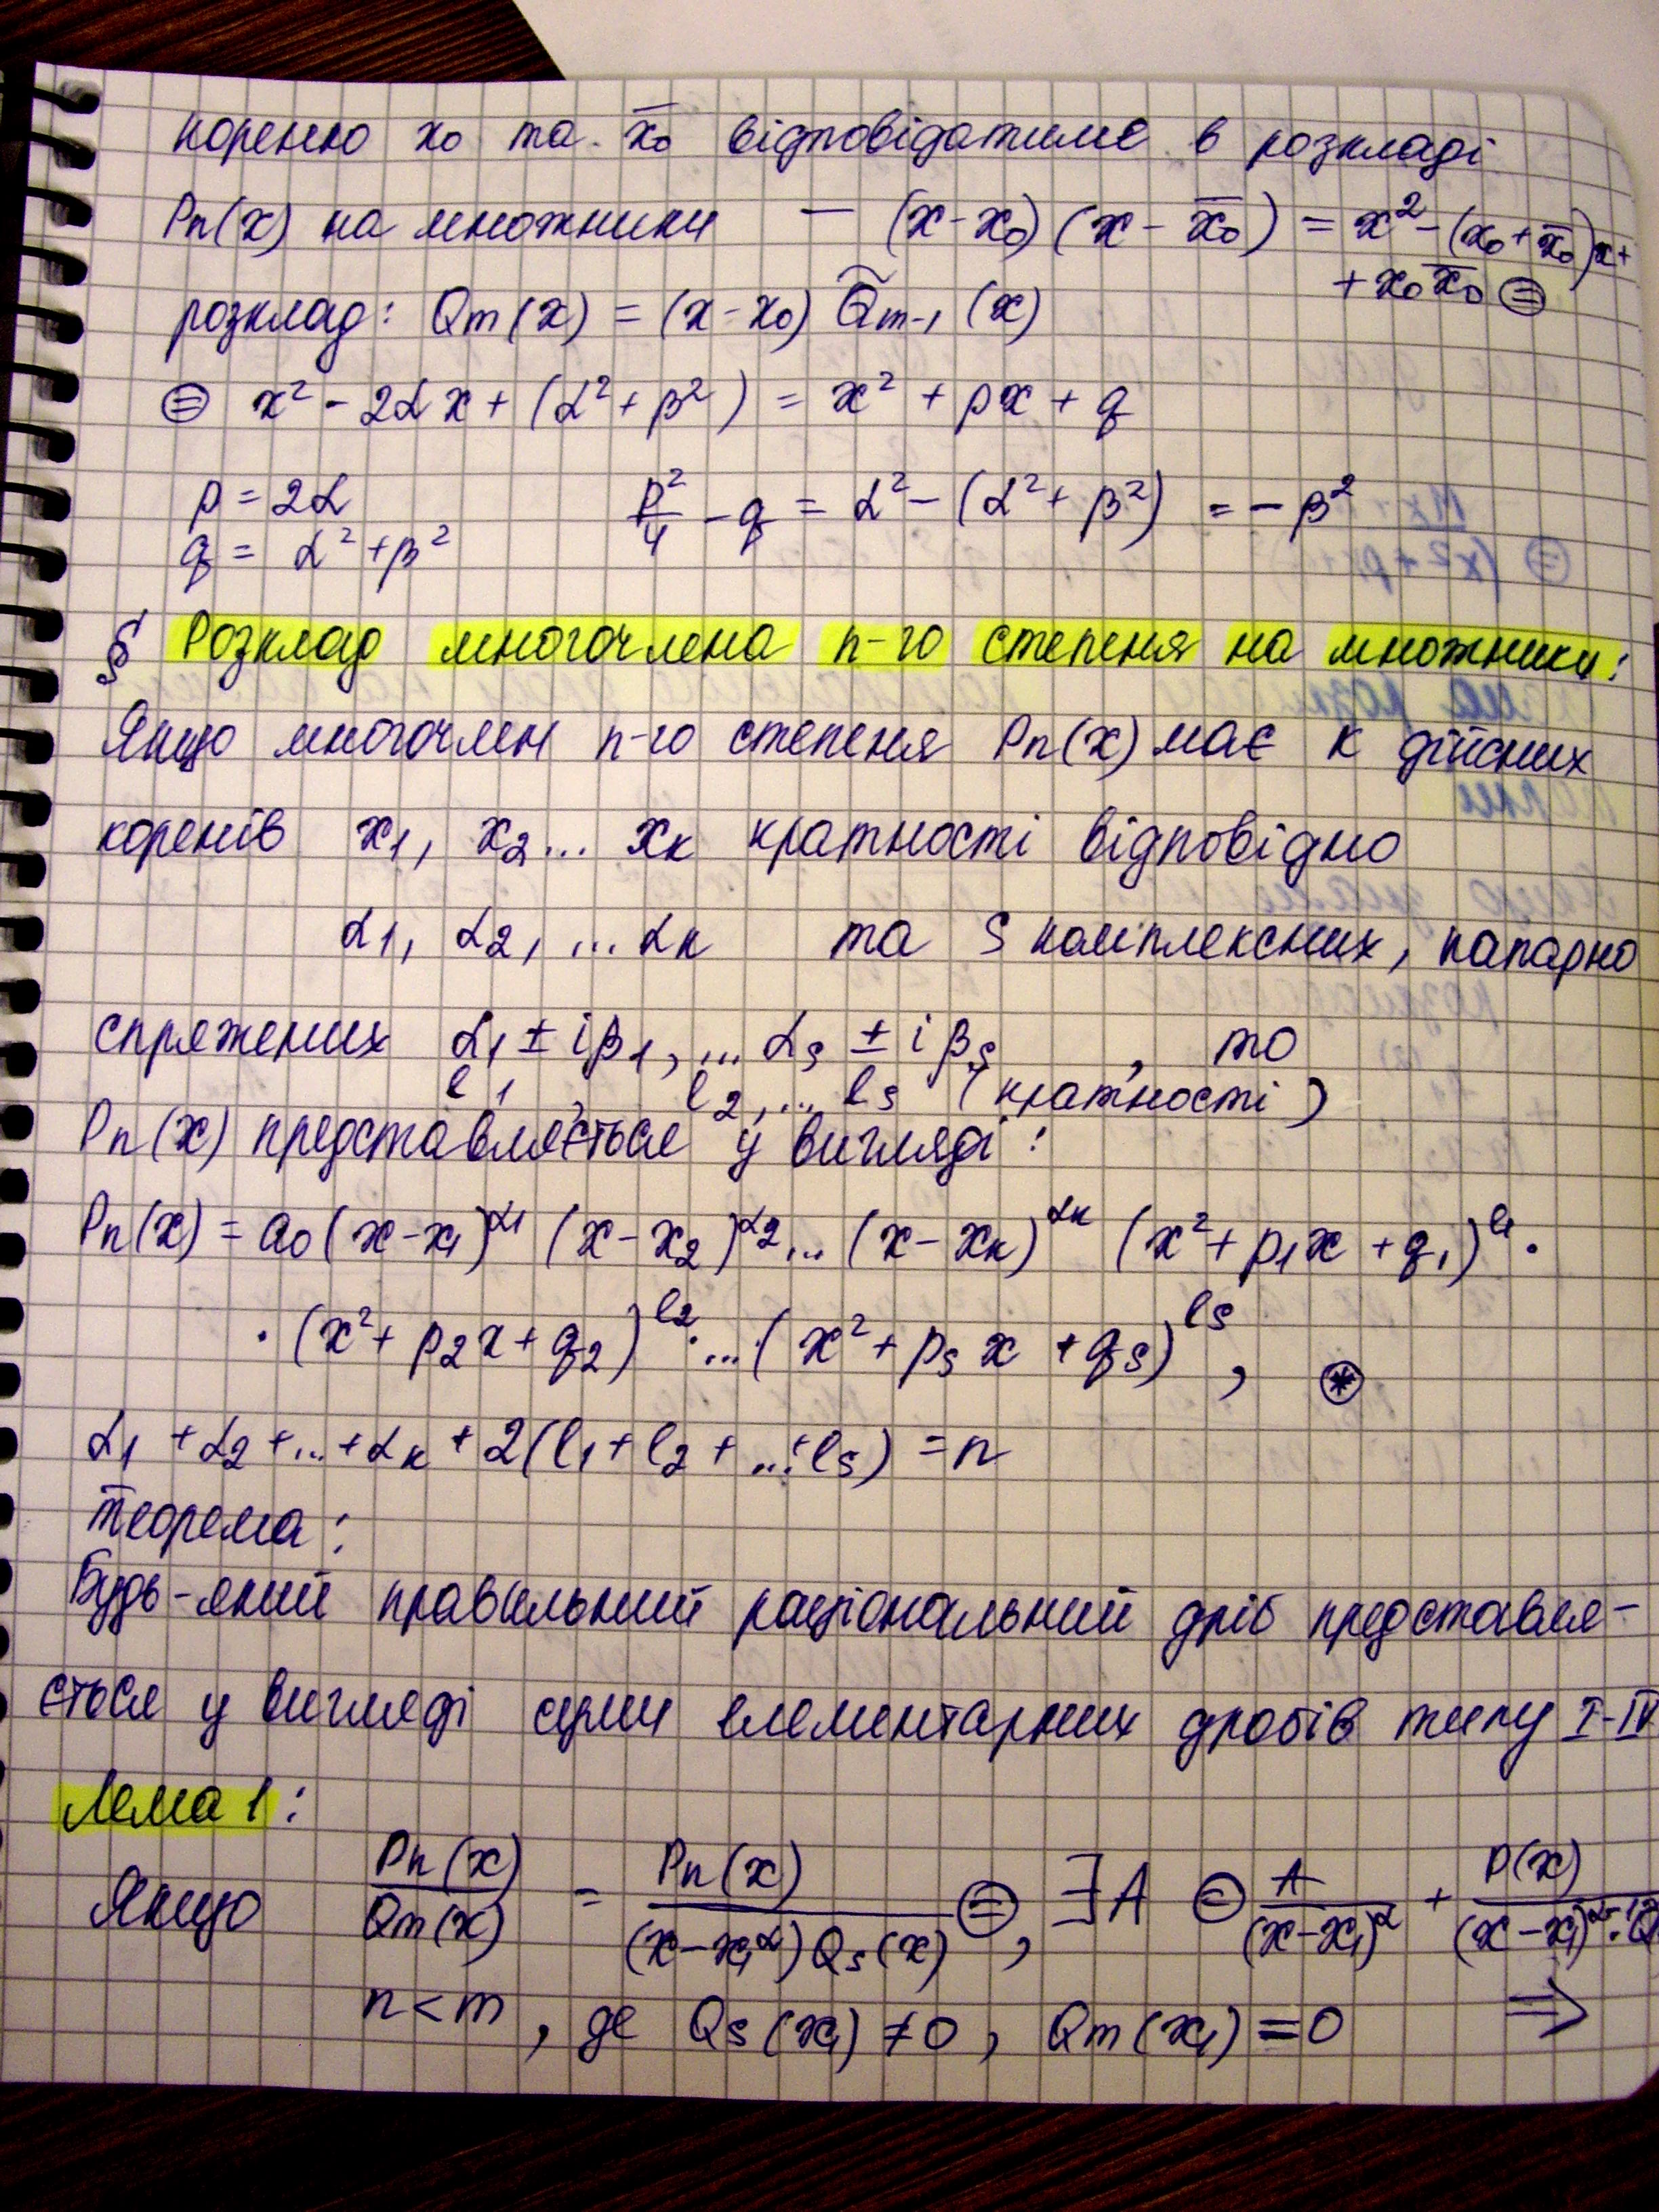 кореню x₀ та x̄₀ відповідатиме в розкладі
Pn(x) на множники — (x-x₀)(x-x̄₀) = x²-(x₀+x̄₀)x+
+ x₀x̄₀ ⊜
розклад: Qm(x) = (x-x₀) Q̃m-1 (x)
⊜ x² - 2αx + (α²+β²) = x² + px + q
p = 2α p²/4 - q = α² - (α²+β²) = -β²
q = α²+β²
§ Розклад многочлена n-го степеня на множники:
Якщо многочлен n-го степеня Pn(x) має k дійсних
коренів x₁, x₂... xk кратності відповідно
α₁, α₂, ... αk та s комплексних, попарно
спряжених α₁ ± iβ₁, ... αs ± iβs , то
l₁, l₂, ... ls (кратності)
Pn(x) представляється у вигляді:
Pn(x) = a₀(x-x₁)^α₁ (x-x₂)^α₂ ... (x-xk)^αk (x²+p₁x+q₁)^l₁ ·
· (x²+p₂x+q₂)^l₂ · ... · (x²+psx+qs)^ls , ⊛
α₁+α₂+...+αk+2(l₁+l₂+...+ls) = n
Теорема:
Будь-який правильний раціональний дріб представля-
ється у вигляді суми елементарних дробів типу I-IV
Лема 1:
Якщо Pn(x)/Qm(x) = Pn(x)/((x-x₁^α)Qs(x)) ⊜, ∃A ⊜ A/(x-x₁)^α + P(x)/((x-x₁)^α-1·Q
n<m, де Qs(x₁) ≠ 0, Qm(x₁) = 0 ⇒